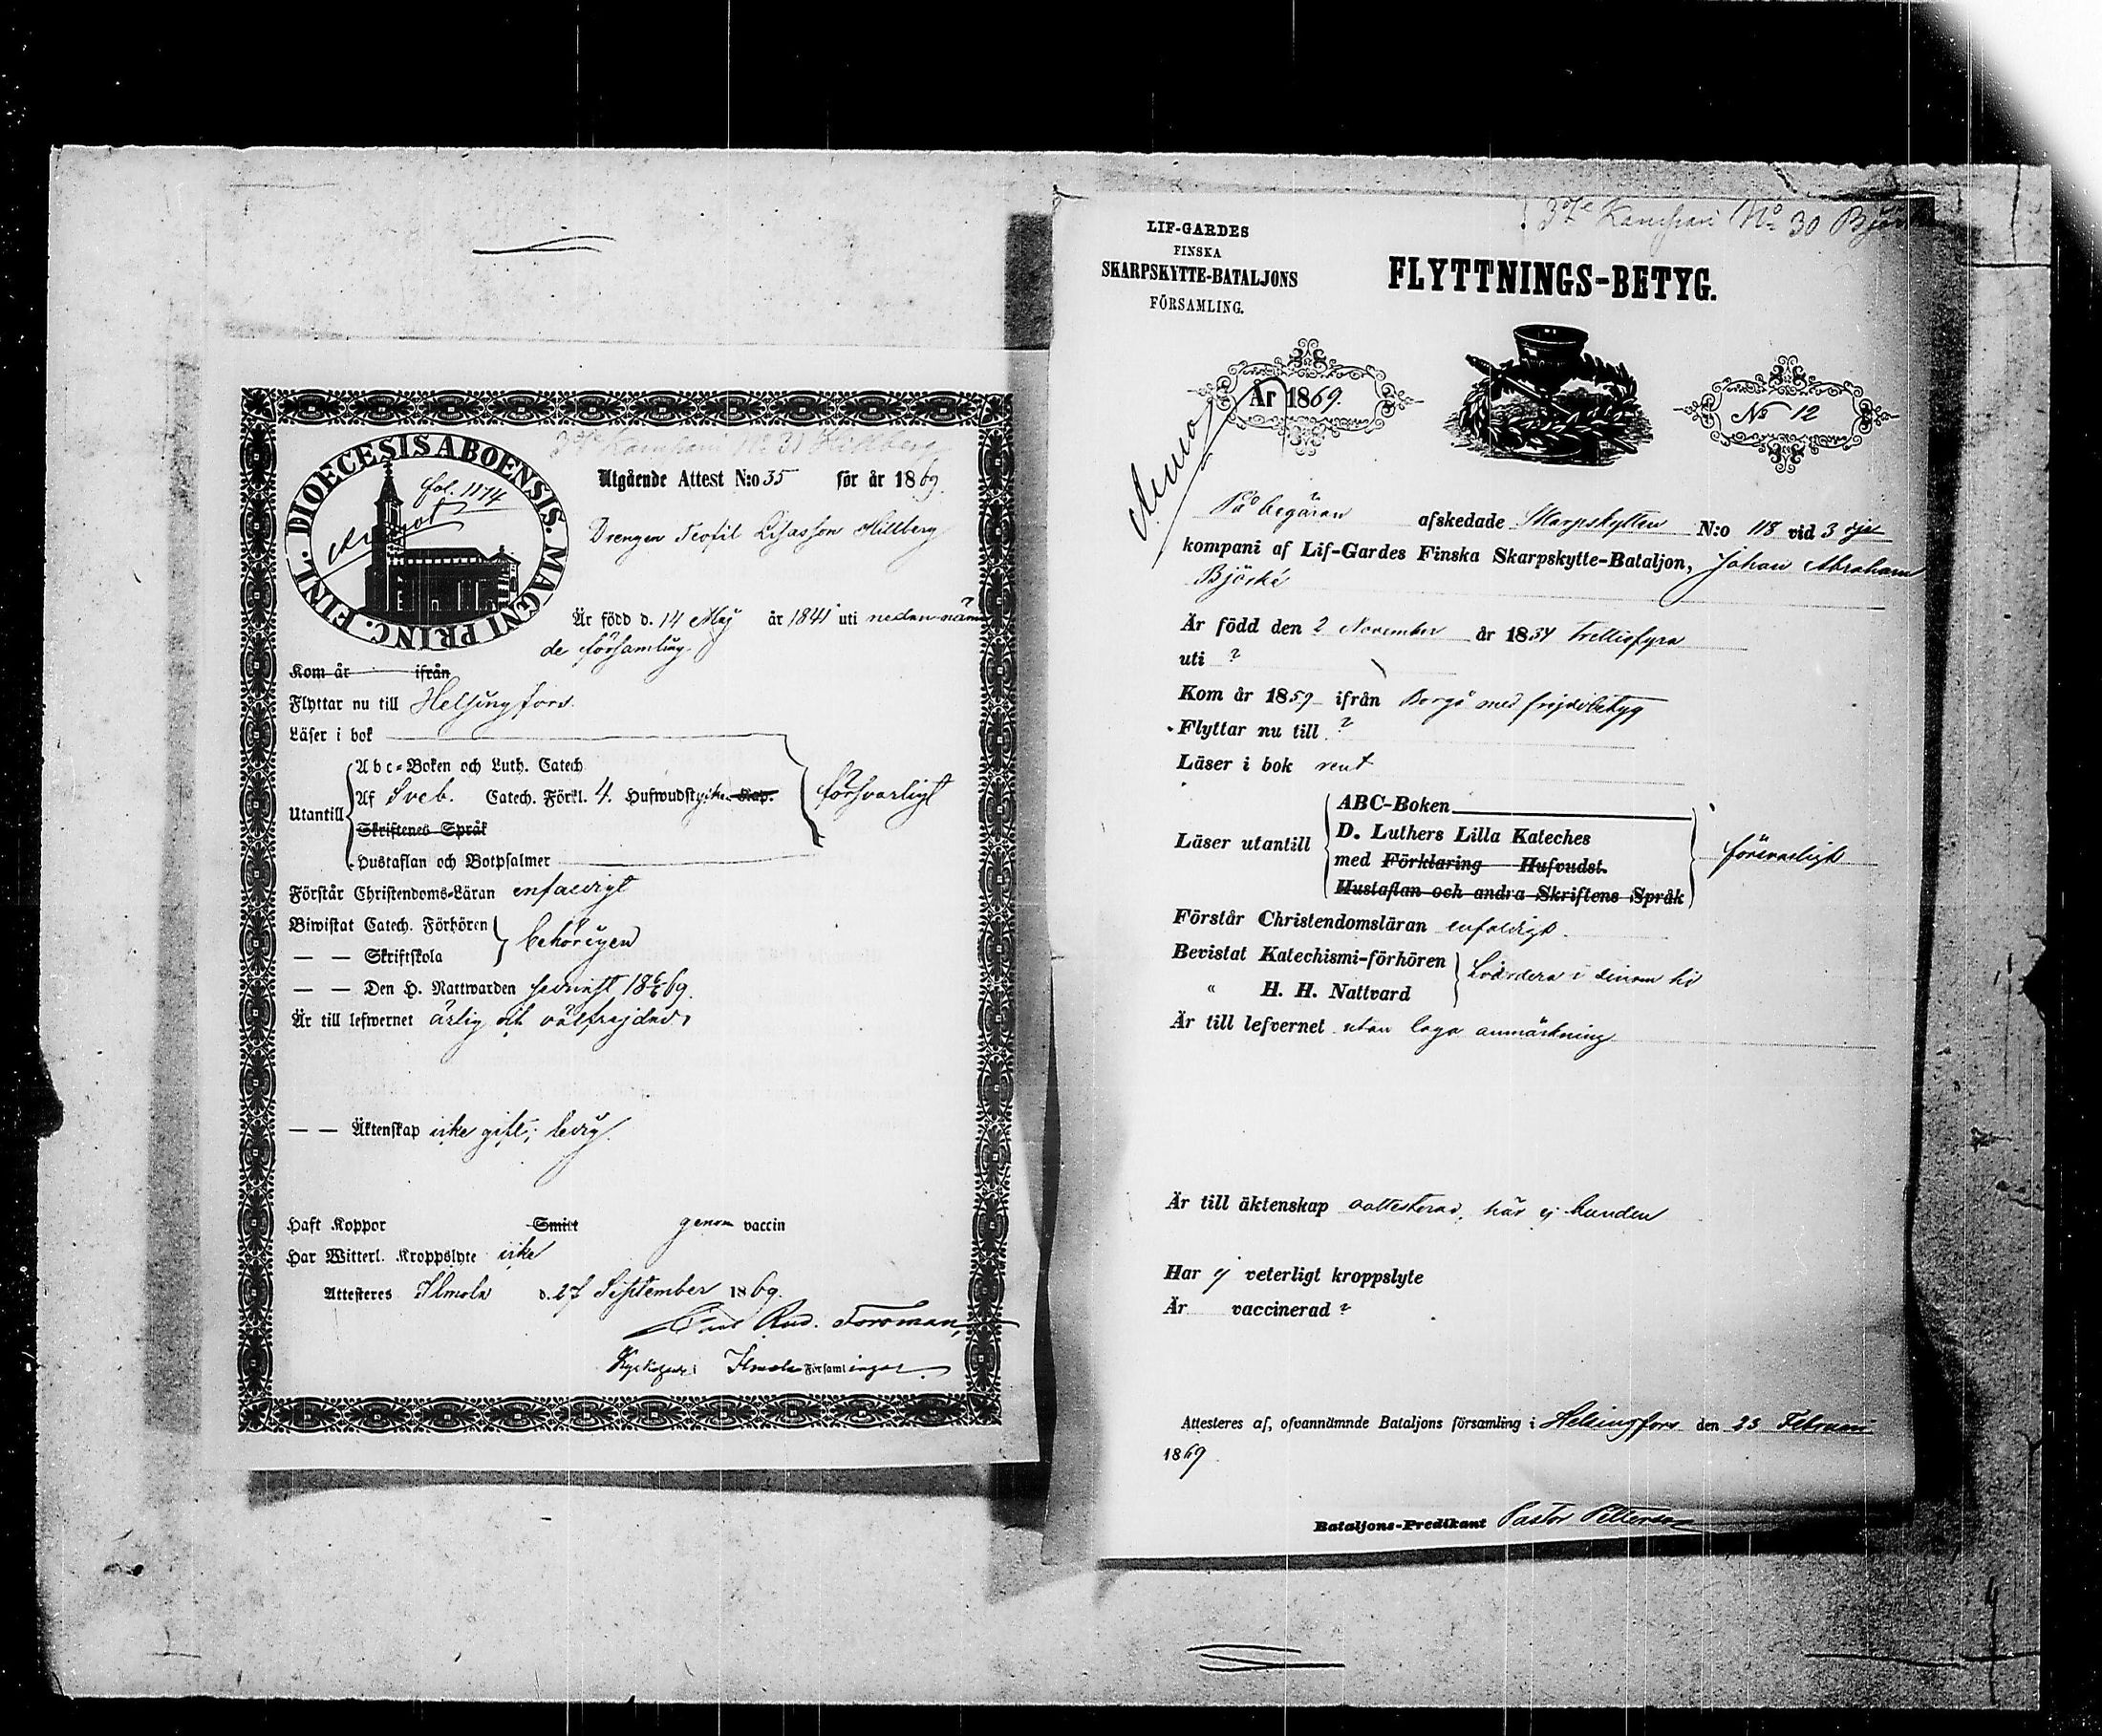 3dje Kompani No 31 Hillberg
DIOECESIS ABOENSIS. MAGNI PRINC. FINL.
fol. 1174
Utgående Attest N:o 35 för år 1869.
Drengen Teofil Lisasson Hillberg
Är född d. 14 Maj år 1841 uti nedannämn
de församling.
Kom år ifrån
Flyttar nu till Helsingfors.
Läser i bok
Utantill
Abc-Boken och Luth. Catech.
Af Sveb. Catech. Förkl. 4. Hufwudstycke. Kap.
Skriftenes Språk
Hustaflan och Botpsalmer
försvarligt
Förstår Christendoms-Läran enfaldigt
Biwistat Catech. Förhören
— — Skriftskola
behörigen
— — Den H. Nattwarden senast 18 6/6 69.
Är till lefwernet ärlig och välfrejdad,
— — Äktenskap icke gift; ledig.
Haft Koppor Smitt genom vaccin
Har Witterl. Kroppslyte icke
Attesteres Ilmola d. 27 September 1869.
Carl Rud. Forsman,
Kyrkoherde i Ilmola Församlingar.
3dje Kompani No 30 Björ
LIF-GARDES
FINSKA
SKARPSKYTTE-BATALJONS
FÖRSAMLING.
FLYTTNINGS-BETYG.
År 1869.
No 12
På begäran afskedade Skarpskytten N:o 118 vid 3 dje
kompani af Lif-Gardes Finska Skarpskytte-Bataljon, Johan Abraham
Björké
Är född den 2 November år 1834 Trettiofyra
uti ?
Kom år 1859 ifrån Borgå med frejdebetyg
Flyttar nu till ?
Läser i bok rent
Läser utantill
ABC-Boken
D. Luthers Lilla Kateches
med Förklaring Hufvudst.
Hustaflan och andra Skriftens Språk
försvarligt
Förstår Christendomsläran enfaldigt.
Bevistat Katechismi-förhören
" H. H. Nattvard
i sinom tid
Är till lefvernet utan laga anmärkning
Är till äktenskap oattesterad, här ej bunden
Har ej veterligt kroppslyte
Är vaccinerad ?
Attesteres af, ofvannämnde Bataljons församling i Helsingfors den 23 Februari
1869
Bataljons-Predikant Pastor Pettersson